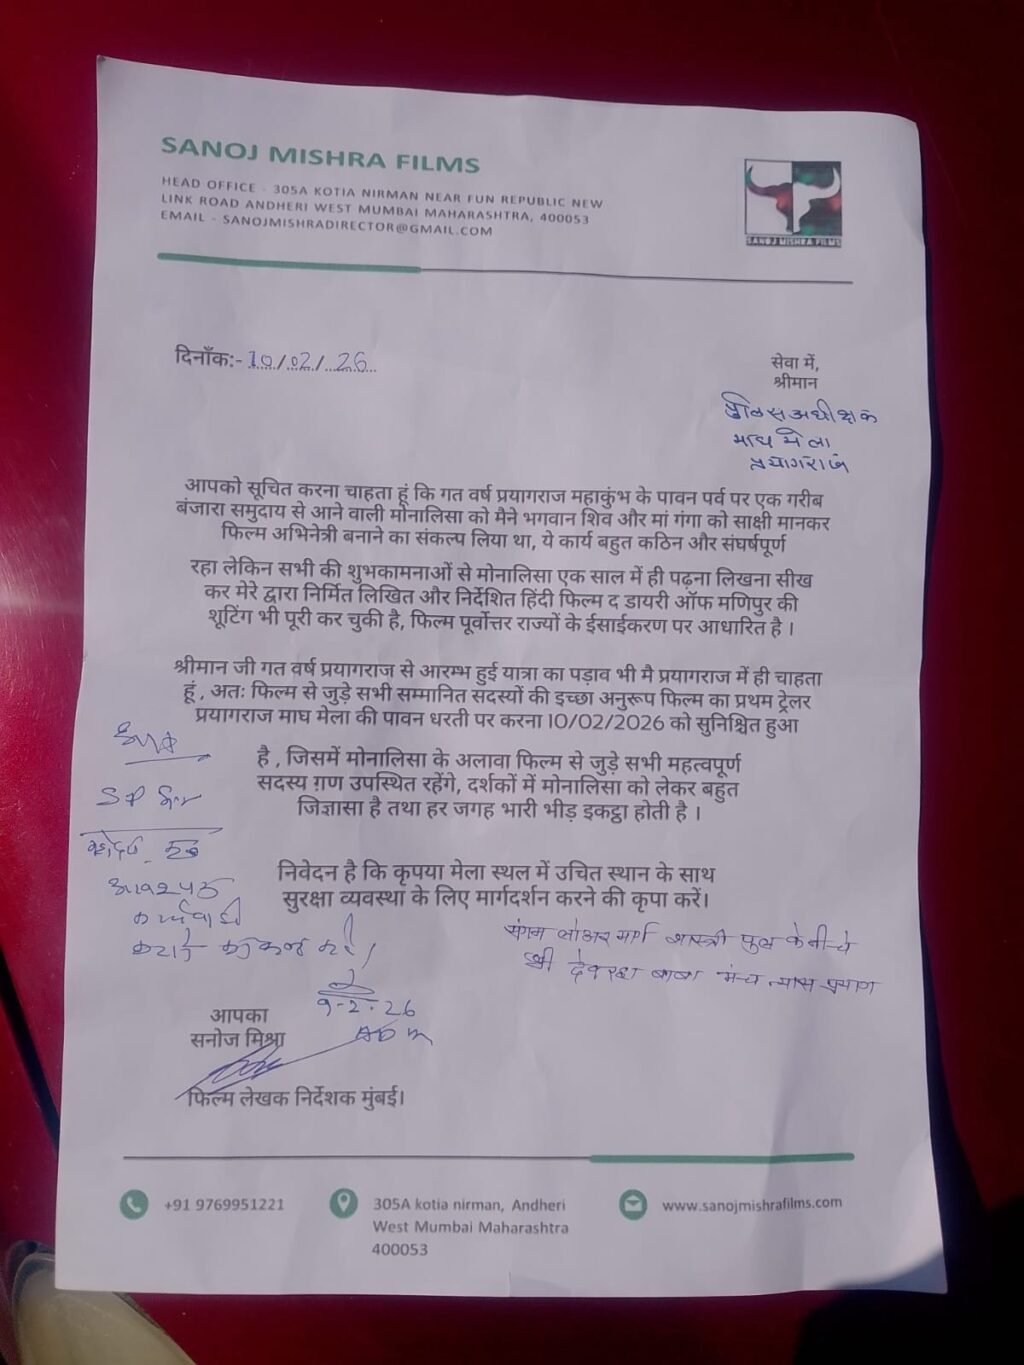 SANOJ MISHRA FILMS
HEAD OFFICE - 305A KOTIA NIRMAN NEAR FUN REPUBLIC NEW
LINK ROAD ANDHERI WEST MUMBAI MAHARASHTRA, 400053
EMAIL - SANOJMISHRADIRECTOR@GMAIL.COM
SANOJ MISHRA FILMS
दिनाँक:- 10/02/26
सेवा में,
श्रीमान
पुलिस अधीक्षक
माघ मेला
प्रयागराज
आपको सूचित करना चाहता हूं कि गत वर्ष प्रयागराज महाकुंभ के पावन पर्व पर एक गरीब
बंजारा समुदाय से आने वाली मोनालिसा को मैने भगवान शिव और मां गंगा को साक्षी मानकर
फिल्म अभिनेत्री बनाने का संकल्प लिया था, ये कार्य बहुत कठिन और संघर्षपूर्ण
रहा लेकिन सभी की शुभकामनाओं से मोनालिसा एक साल में ही पढ़ना लिखना सीख
कर मेरे द्वारा निर्मित लिखित और निर्देशित हिंदी फिल्म द डायरी ऑफ मणिपुर की
शूटिंग भी पूरी कर चुकी है, फिल्म पूर्वोत्तर राज्यों के ईसाईकरण पर आधारित है ।
श्रीमान जी गत वर्ष प्रयागराज से आरम्भ हुई यात्रा का पड़ाव भी मै प्रयागराज में ही चाहता
हूं , अतः फिल्म से जुड़े सभी सम्मानित सदस्यों की इच्छा अनुरूप फिल्म का प्रथम ट्रेलर
प्रयागराज माघ मेला की पावन धरती पर करना 10/02/2026 को सुनिश्चित हुआ
है , जिसमें मोनालिसा के अलावा फिल्म से जुड़े सभी महत्वपूर्ण
सदस्य ग़ण उपस्थित रहेंगे, दर्शकों में मोनालिसा को लेकर बहुत
जिज्ञासा है तथा हर जगह भारी भीड़ इकट्ठा होती है ।
निवेदन है कि कृपया मेला स्थल में उचित स्थान के साथ
सुरक्षा व्यवस्था के लिए मार्गदर्शन करने की कृपा करें।
संगम लोअर मार्ग शास्त्री पुल के नीचे
श्री देवरहा बाबा मंच न्यास प्रयाग
SP
आवश्यक
कार्यवाही
करें।
9-2-26
आपका
सनोज मिश्रा
फिल्म लेखक निर्देशक मुंबई।
+91 9769951221
305A kotia nirman, Andheri
West Mumbai Maharashtra
400053
www.sanojmishrafilms.com